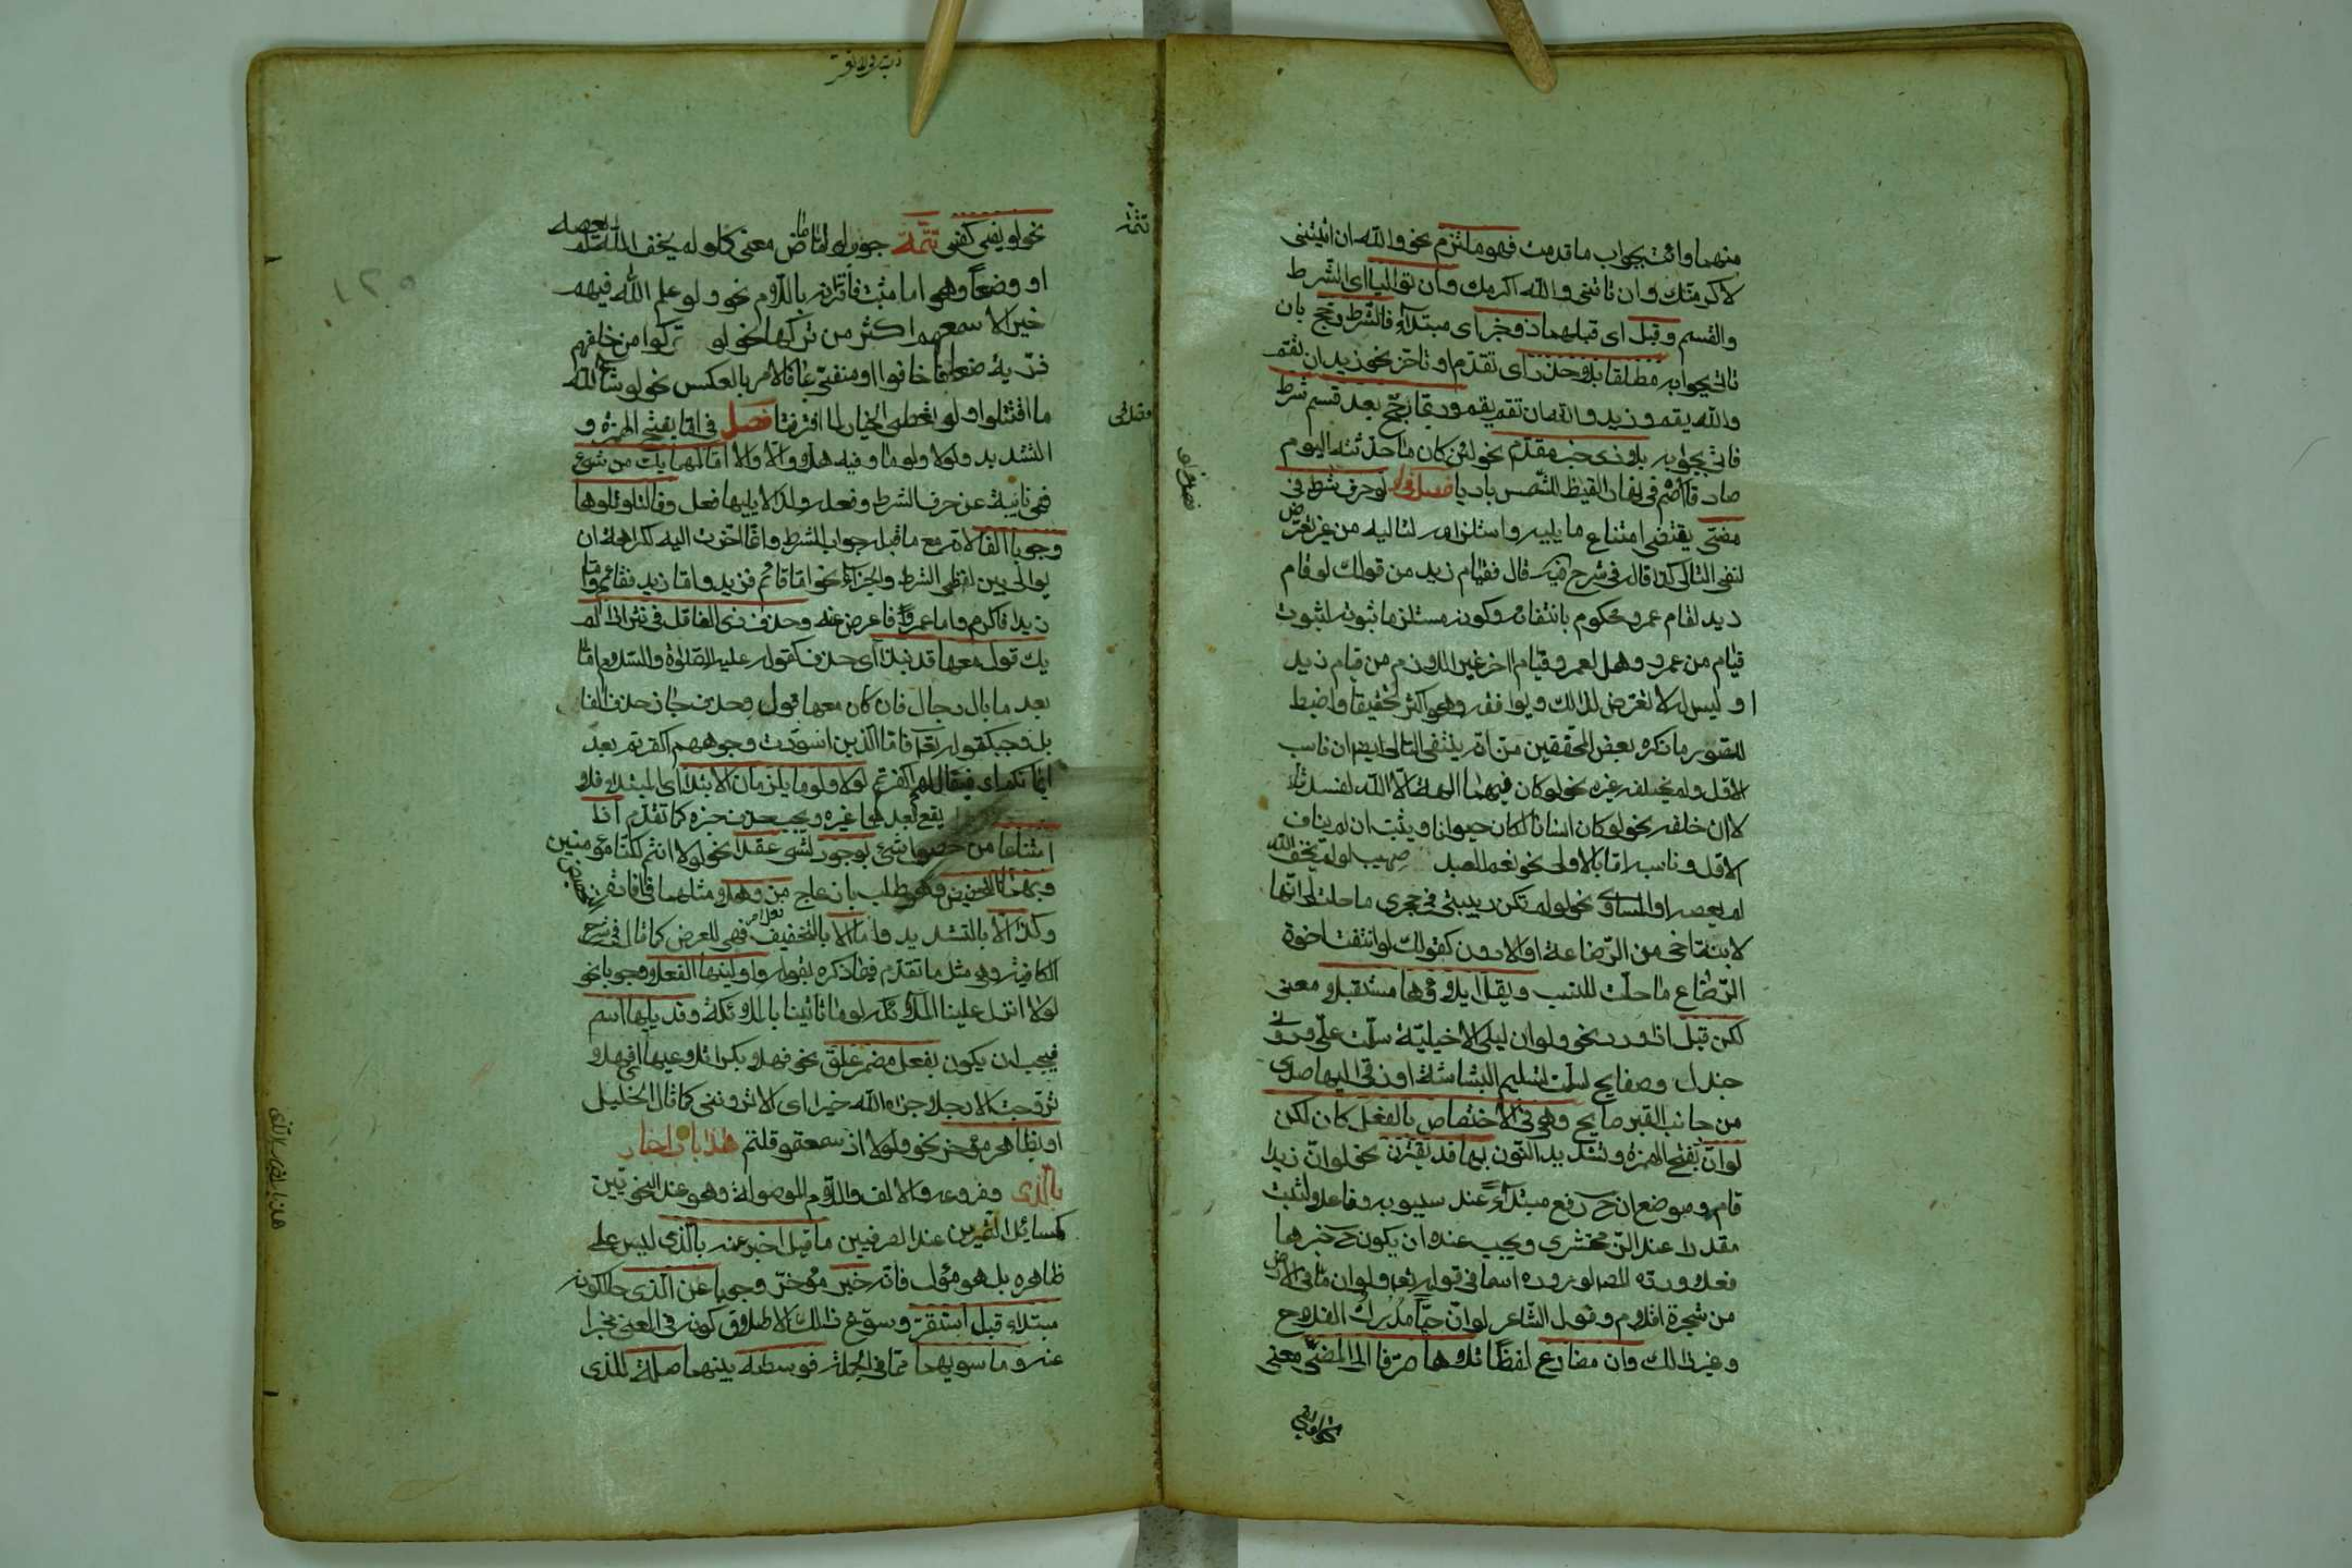 منهما وائت بجواب ما قدمت فهو ملتزم نحو والله ان اتيتنى
لاكرمتك وان تاتنى والله اكرمك وان تواليا اى الشرط
والقسم وقبل اى قبلهما ذو خبر اى مبتدأ فالشرط رجح بان
تاتى بجوابه مطلقا بلا حذر اى تقدم او تاخر نحو زيد ان تقم
والله يقم وزيد والله ان تقم يقم وربما رجح بعد قسم شرط
فاتى بجوابه بلا ذى خبر مقدم نحو لئن كان ما حدثته اليوم
صادقا اصم فى نهار القيظ للشمس باديا فصل فى لو لو حرف شرط فى
مضى يقتضى امتناع ما يليه واستلزامه لتاليه من غير تعرض
لنفى التالى كذا قال فى شرح الكافية قال فقيام زيد من قولك لو قام
زيد لقام عمرو محكوم بانتفائه وكونه مستلزما ثبوته لثبوت
قيام من عمرو وهل لعمرو قيام اخر غير اللازم من قيام زيد
او ليس له لا تعرض لذلك ويوافقه وهو اكثر تحقيقا واضبط
للصور ما ذكره بعض المحققين من انه ينتفى التالى ايضا ان ناسب
الاول ولم يخلفه غيره نحو لو كان فيهما الهة الا الله لفسدتا
لا ان خلفه نحو لو كان انسانا لكان حيوانا ويثبت ان لم يناف
الاول وناسبه اما بالاولى نحو نعم العبد صهيب لو لم يخف الله
لم يعصه او المساوى نحو لو لم تكن ربيبتى فى حجرى ما حلت لى انها
لابنة اخى من الرضاعة او الادون كقولك لو انتفت اخوة
الرضاع ما حلت للنسب ويقل ايلاؤها مستقبلا معنى
لكن قبل اذا ورد نحو ولو ان ليلى الاخيلية سلمت على ودونى
جندل وصفايح لسلمت تسليم البشاشة او زقى اليها صدى
من جانب القبر صايح وهى فى الاختصاص بالفعل كان لكن
لو ان بفتح الهمزة وتشديد النون بها قد تقترن نحو لو ان زيدا
قام وموضع ان ح رفع مبتدأ عند سيبويه وفاعلا لثبت
مقدرا عند الزمخشرى ويجب عنده ان يكون ح خبرها
فعلا ورده المص لوروده اسما فى قوله تعالى ولو ان ما فى الارض
من شجرة اقلام وقول الشاعر لو ان حيا مدرك الفلاح
وغير ذلك وان مضارع لفظا تلاها صرفا الى المضى معنى
نحو لو يفى
فصل لو
نحو لو يفى كفى تتمة جواب لو اما ماض معنى كلو لم يخف الله لم يعصه
او وضعا وهو اما مثبت فاقترانه باللام نحو ولو علم الله فيهم
خيرا لاسمعهم اكثر من تركها نحو لو تركوا من خلفهم
ذرية ضعافا خافوا او منفى بما فالامر بالعكس نحو لو شاء الله
ما اقتتلوا ولو نعطى الخيار لما افترقنا فصل فى اما بفتح الهمزة و
التشديد ولولا ولوما وفيه هلا والا والا اما كمهما يك من شىء
فهى نائبة عن حرف الشرط وفعله ولذا لا يليها فعل وفا لتلو تلوها
وجوبا الفا لانه مع ما قبل جواب الشرط وانما اخرت اليه لكراهة ان
يوالى بين لفظى الشرط والجزاء نحو اما قائم فزيد واما زيد فقائم واما
زيدا فاكرم واما عمروا فاعرض عنه وحذف ذى الفا قل فى نثر اذا لم
يك قول معها قد نبذا اى حذف كقوله عليه الصلوة والسلام اما
بعد ما بال رجال فان كان معها قول وحذف جاز حذف الفا
بل وجب كقوله تعالى فاما الذين اسودت وجوههم اكفرتم بعد
ايمانكم اى فيقال لهم اكفرتم لولا ولوما يلزمان الابتدا اى المبتدا فلا
يقع بعدهما غيره ويجب حذف خبره كما تقدم اذا
امتناعا من حصول شىء لوجود لشىء عقدا نحو لولا انتم لكنا مؤمنين
وبهما التحضيض وهو طلب بازعاج مز وهلا مثلهما فى افادته
وكذا الا بالتشديد واما الا بالتخفيف فهى للعرض كما قال فى شرح
الكافية وهى مثل ما تقدم فيما ذكره بقوله واولينها الفعلا وجوبا نحو
لولا انزل علينا الملائكة لوما تاتينا بالملائكة وقد يليها اسم
فيجب ان يكون بفعل مضمر علق نحو فهلا بكرا تلاعبها اى فهلا
تزوجت الا رجلا جزاه الله خيرا اى الا ترونى كما قال الخليل
او بظاهر مؤخر نحو ولولا اذ سمعتموه قلتم هذا باب الاخبار
بالذى وفروعه والالف واللام الموصولة وهو عند النحويين
كمسائل التمرين عند الصرفيين ما قيل اخبر عنه بالذى ليس على
ظاهره بل هو مؤل فانه خبر مؤخر وجوبا عن الذى حالكونه
مبتداء قبل استقر وسوغ ذلك الاطلاق كونه فى المعنى مخبرا
عنه وما سويهما مما فى الجملة فوسطه بينهما صلة للذى
تتمة
فصل فى
١٢٥